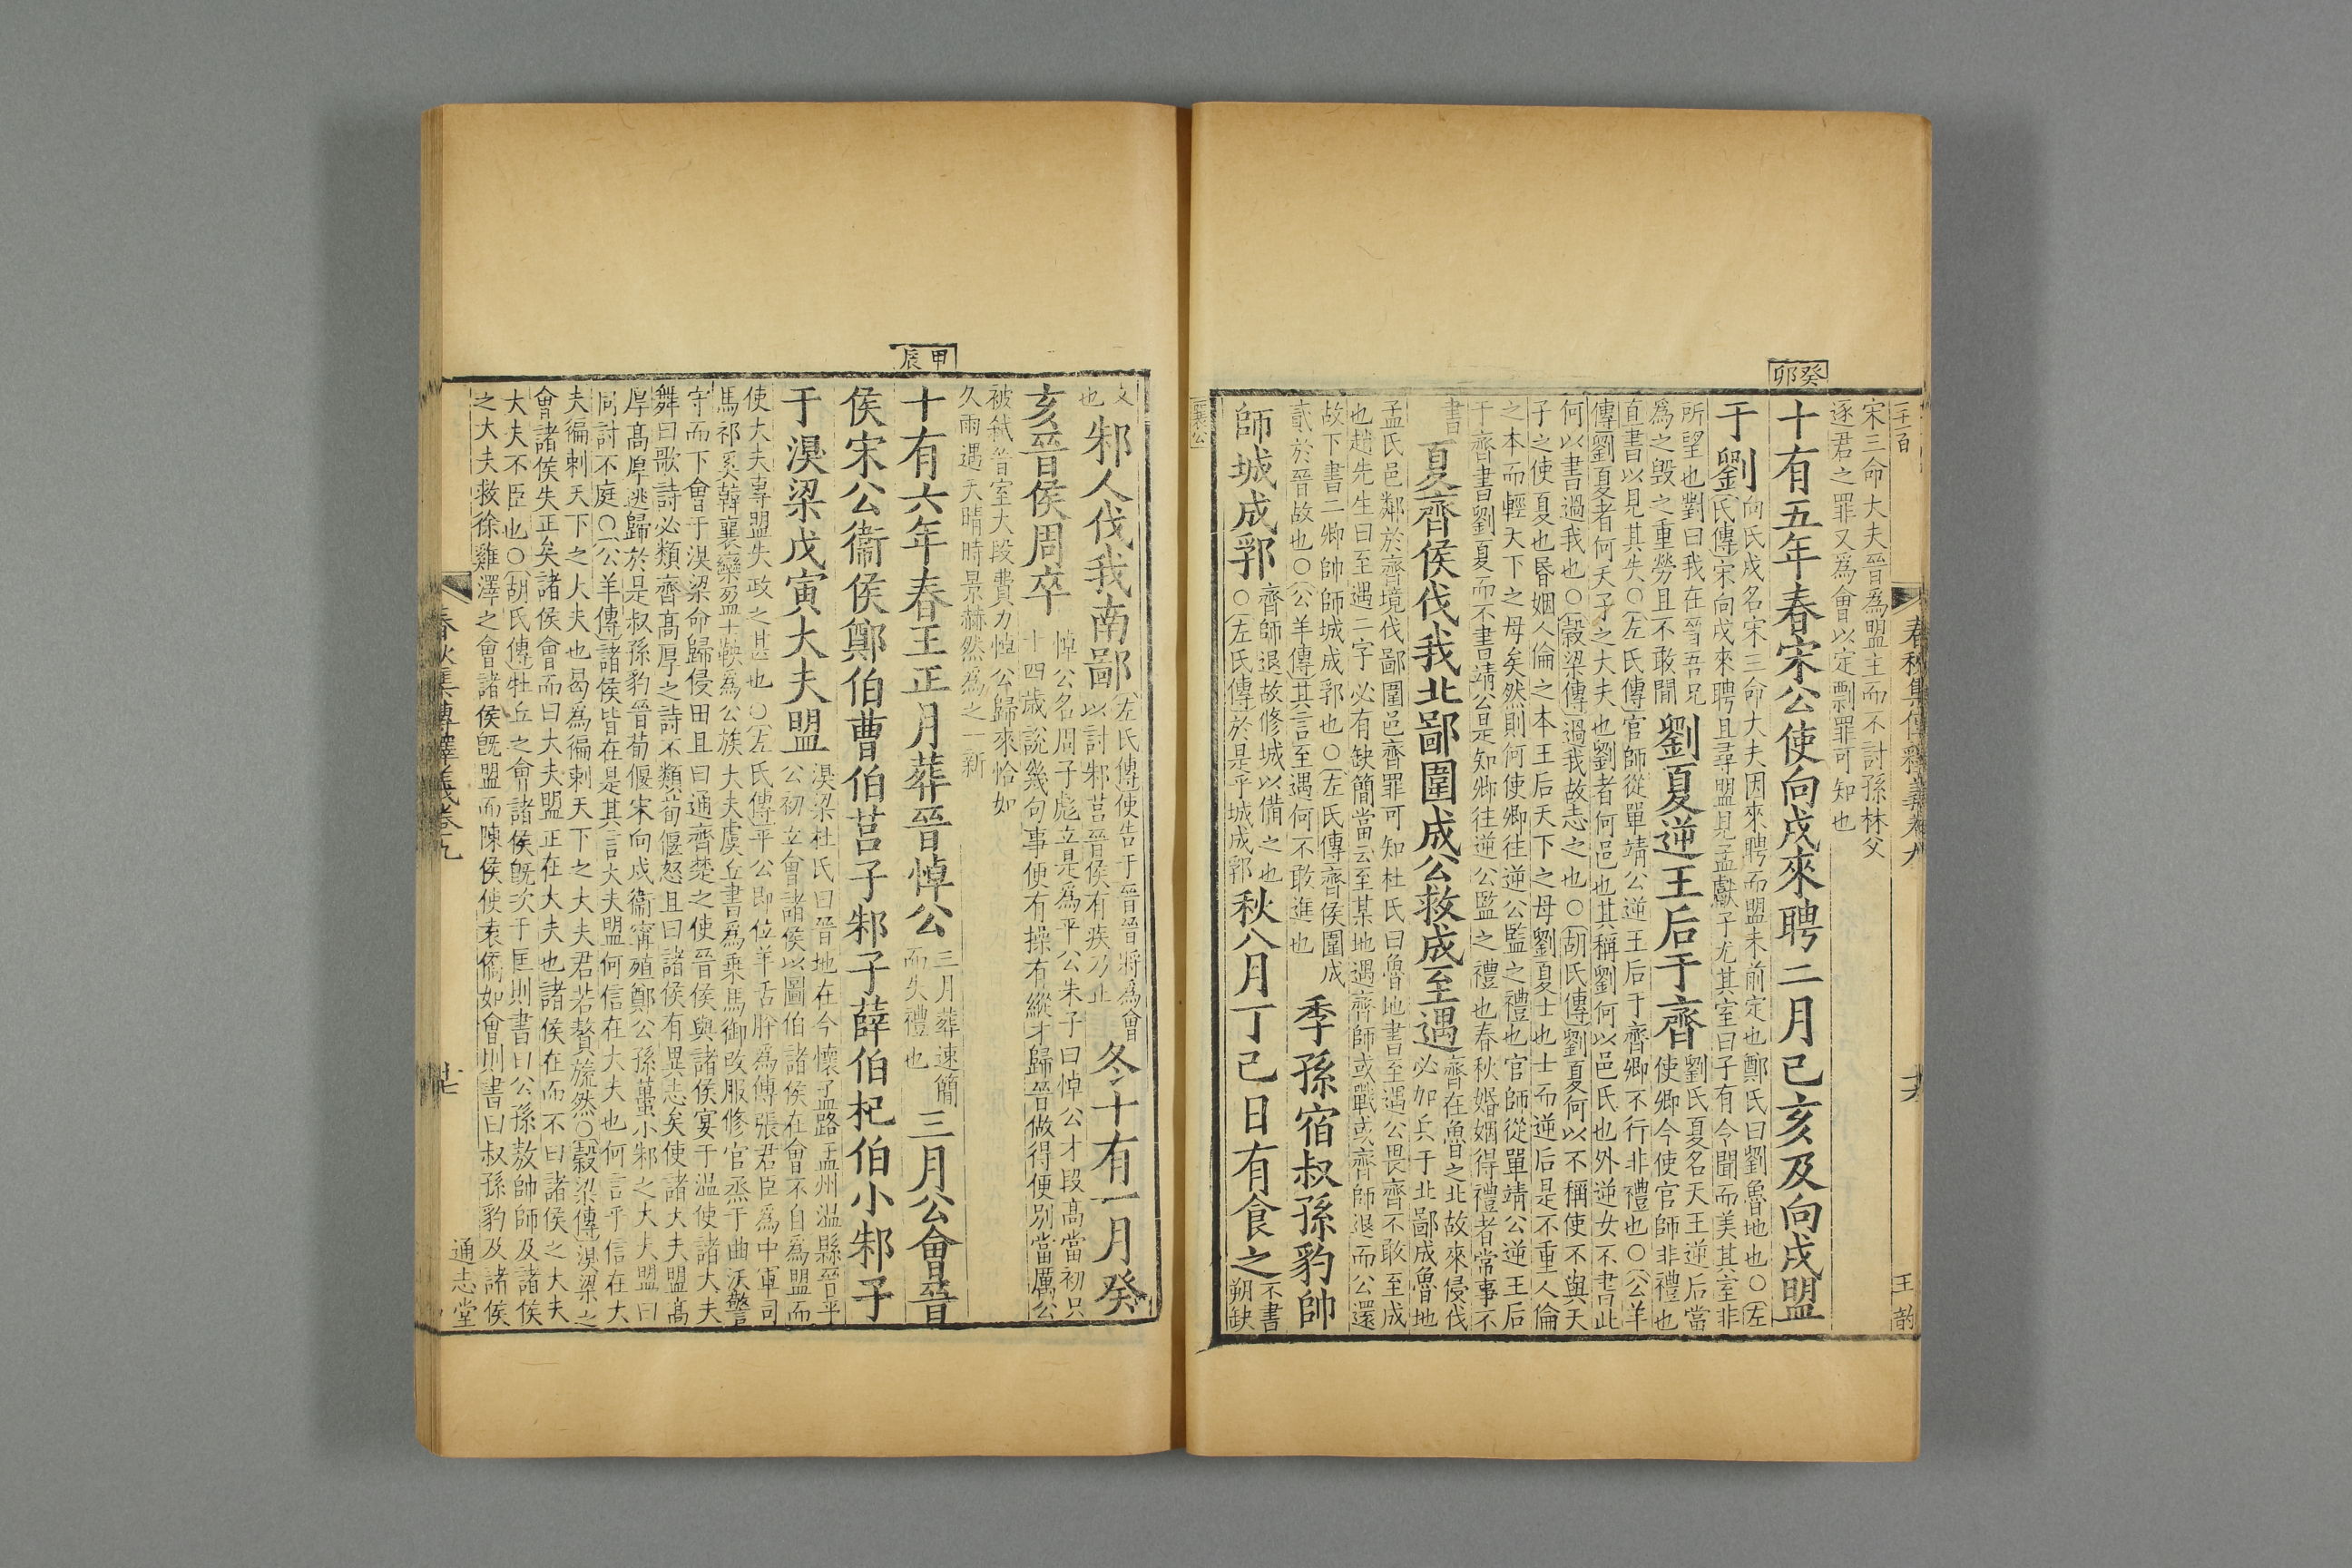 春秋集傳釋義卷九 十六 王 韵
癸卯
宋三命大夫晉爲盟主而不討孫林父
逐君之罪又爲會以定剽罪可知也
十有五年春宋公使向戌來聘二月己亥及向戌盟
于劉
向氏戌名宋三命大夫因來聘而盟未前定也鄭氏曰劉魯地也○左
氏傳宋向戌來聘且尋盟見孟獻子尤其室曰子有令聞而美其室非
所望也對曰我在晉吾兄
爲之毀之重勞且不敢間
劉夏逆王后于齊
劉氏夏名天王逆后當
使卿今使官師非禮也
直書以見其失○左氏傳官師從單靖公逆王后于齊卿不行非禮也○公羊
傳劉夏者何天子之大夫也劉者何邑也其稱劉何以邑氏也外逆女不書此
何以書過我也○穀梁傳過我故志之也○胡氏傳劉夏何以不稱使不與天
子之使夏也昏姻人倫之本王后天下之母劉夏士也士而逆后是不重人倫
之本而輕天下之母矣然則何使卿往逆公監之禮也官師從單靖公逆王后
于齊書劉夏而不書靖公是知卿往逆公監之禮也春秋婚姻得禮者常事不
書
夏齊侯伐我北鄙圍成公救成至遇
齊在魯之北故來侵伐
必加兵于北鄙成魯地
孟氏邑鄰於齊境伐鄙圍邑齊罪可知杜氏曰魯地書至遇公畏齊不敢至成
也趙先生曰至遇二字必有缺簡當云至某地遇齊師或戰或齊師退而公還
故下書二卿帥師城成郛也○左氏傳齊侯圍成
貳於晉故也○公羊傳其言至遇何不敢進也
季孫宿叔孫豹帥
師城成郛
齊師退故修城以備之也
○左氏傳於是乎城成郛
秋八月丁巳日有食之
不書
朔缺
襄公
也
邾人伐我南鄙
左氏傳使告于晉晉將爲會
以討邾莒晉侯有疾乃止
冬十有一月癸
亥晉侯周卒
悼公名周子彪立是爲平公朱子曰悼公才段高當初只
十四歲說幾句事便有操有縱才歸晉做得便別當厲公
被弒晉室大段費力悼公歸來恰如
久雨遇天晴時景赫然爲之一新
甲辰
十有六年春王正月葬晉悼公
三月葬速簡
而失禮也
三月公會晉
侯宋公衞侯鄭伯曹伯莒子邾子薛伯杞伯小邾子
于湨梁戊寅大夫盟
湨梁杜氏曰晉地在今懷孟路孟州溫縣晉平
公初立會諸侯以圖伯諸侯在會不自爲盟而
使大夫專盟失政之甚也○左氏傳平公即位羊舌肸爲傅張君臣爲中軍司
馬祁奚韓襄欒盈士鞅爲公族大夫虞丘書爲乘馬御改服修官烝于曲沃警
守而下會于湨梁命歸侵田且曰通齊楚之使晉侯與諸侯宴于溫使諸大夫
舞曰歌詩必類齊高厚之詩不類荀偃怒且曰諸侯有異志矣使諸大夫盟高
厚高厚逃歸於是叔孫豹晉荀偃宋向戌衞甯殖鄭公孫蠆小邾之大夫盟曰
同討不庭○公羊傳諸侯皆在是其言大夫盟何信在大夫也何言乎信在大
夫徧刺天下之大夫也曷爲徧刺天下之大夫君若贅旒然○穀梁傳湨梁之
會諸侯失正矣諸侯會而曰大夫盟正在大夫也諸侯在而不曰諸侯之大夫
大夫不臣也○胡氏傳牡丘之會諸侯旣次于匡則書曰公孫敖帥師及諸侯
之大夫救徐雞澤之會諸侯旣盟而陳侯使袁僑如會則書曰叔孫豹及諸侯
春秋集傳釋義卷九 廿七
通志堂